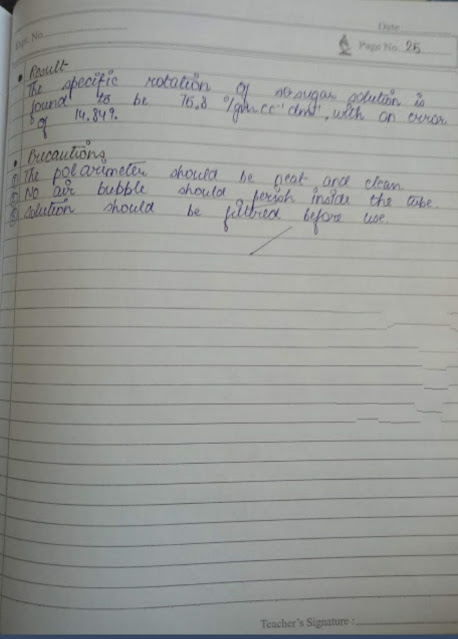 Date
Expt. No.
Page No. 25
• Result
The specific rotation of sugar solution is
found to be 75.8 °/gm cc⁻¹ dm⁻¹, with an error
of 14.84%.
• Precautions
① The polarimeter should be neat and clean
② No air bubble should perish inside the tube.
③ Solution should be filtered before use.
Teacher's Signature :